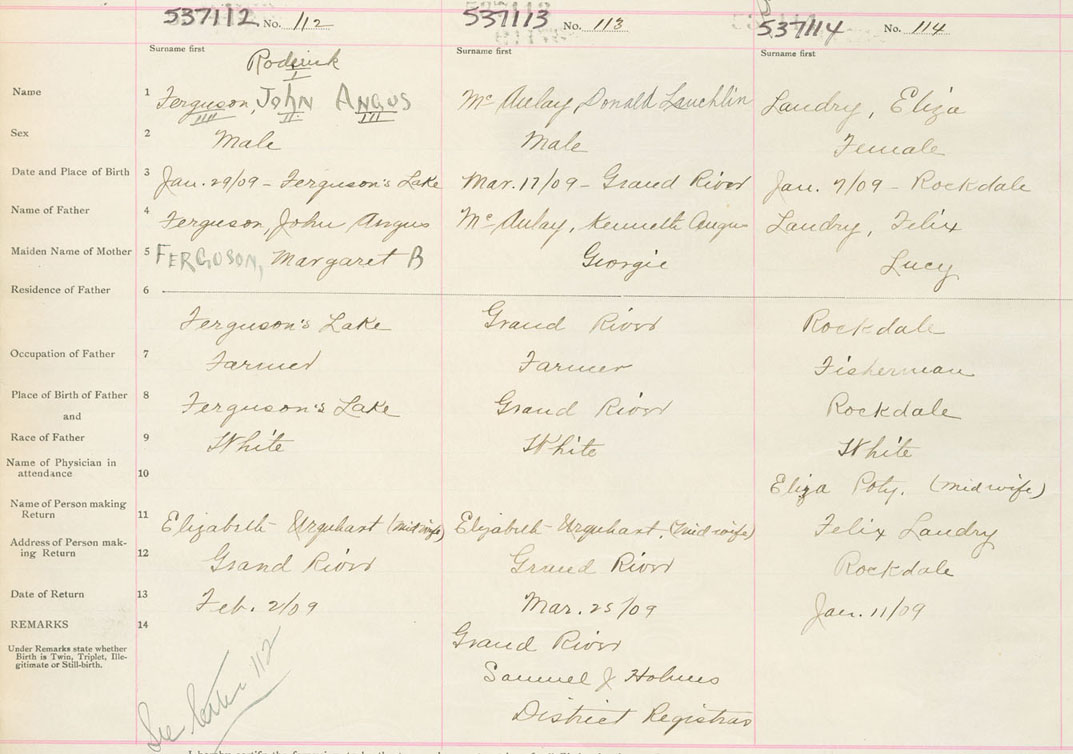 537112 No. 112 537113 No. 113 537114 No. 114
Surname first Surname first Surname first
Roderick
I
Name 1 Ferguson, JOHN ANGUS McAulay, Donald Lauchlin Landry, Eliza
IIII II III
Sex 2 Male Male Female
Date and Place of Birth 3 Jan. 29/09 - Ferguson's Lake Mar. 17/09 - Grand River Jan. 7/09 - Rockdale
Name of Father 4 Ferguson, John Angus McAulay, Kenneth Angus Landry, Felix
Maiden Name of Mother 5 FERGUSON, Margaret B Georgie Lucy
Residence of Father 6
Ferguson's Lake Grand River Rockdale
Occupation of Father 7 Farmer Farmer Fisherman
Place of Birth of Father 8 Ferguson's Lake Grand River Rockdale
and
Race of Father 9 White White White
Name of Physician in
attendance 10 Eliza Poty. (midwife)
Name of Person making
Return 11 Elizabeth Urquhart (midwife) Elizabeth Urquhart, (midwife) Felix Landry
Address of Person mak-
ing Return 12 Grand River Grand River Rockdale
Date of Return 13 Feb. 2/09 Mar. 25/09 Jan. 11/09
REMARKS 14 Grand River
Under Remarks state whether
Birth is Twin, Triplet, Ille-
gitimate or Still-birth.
Samuel J Holmes
District Registrar
See letter 112